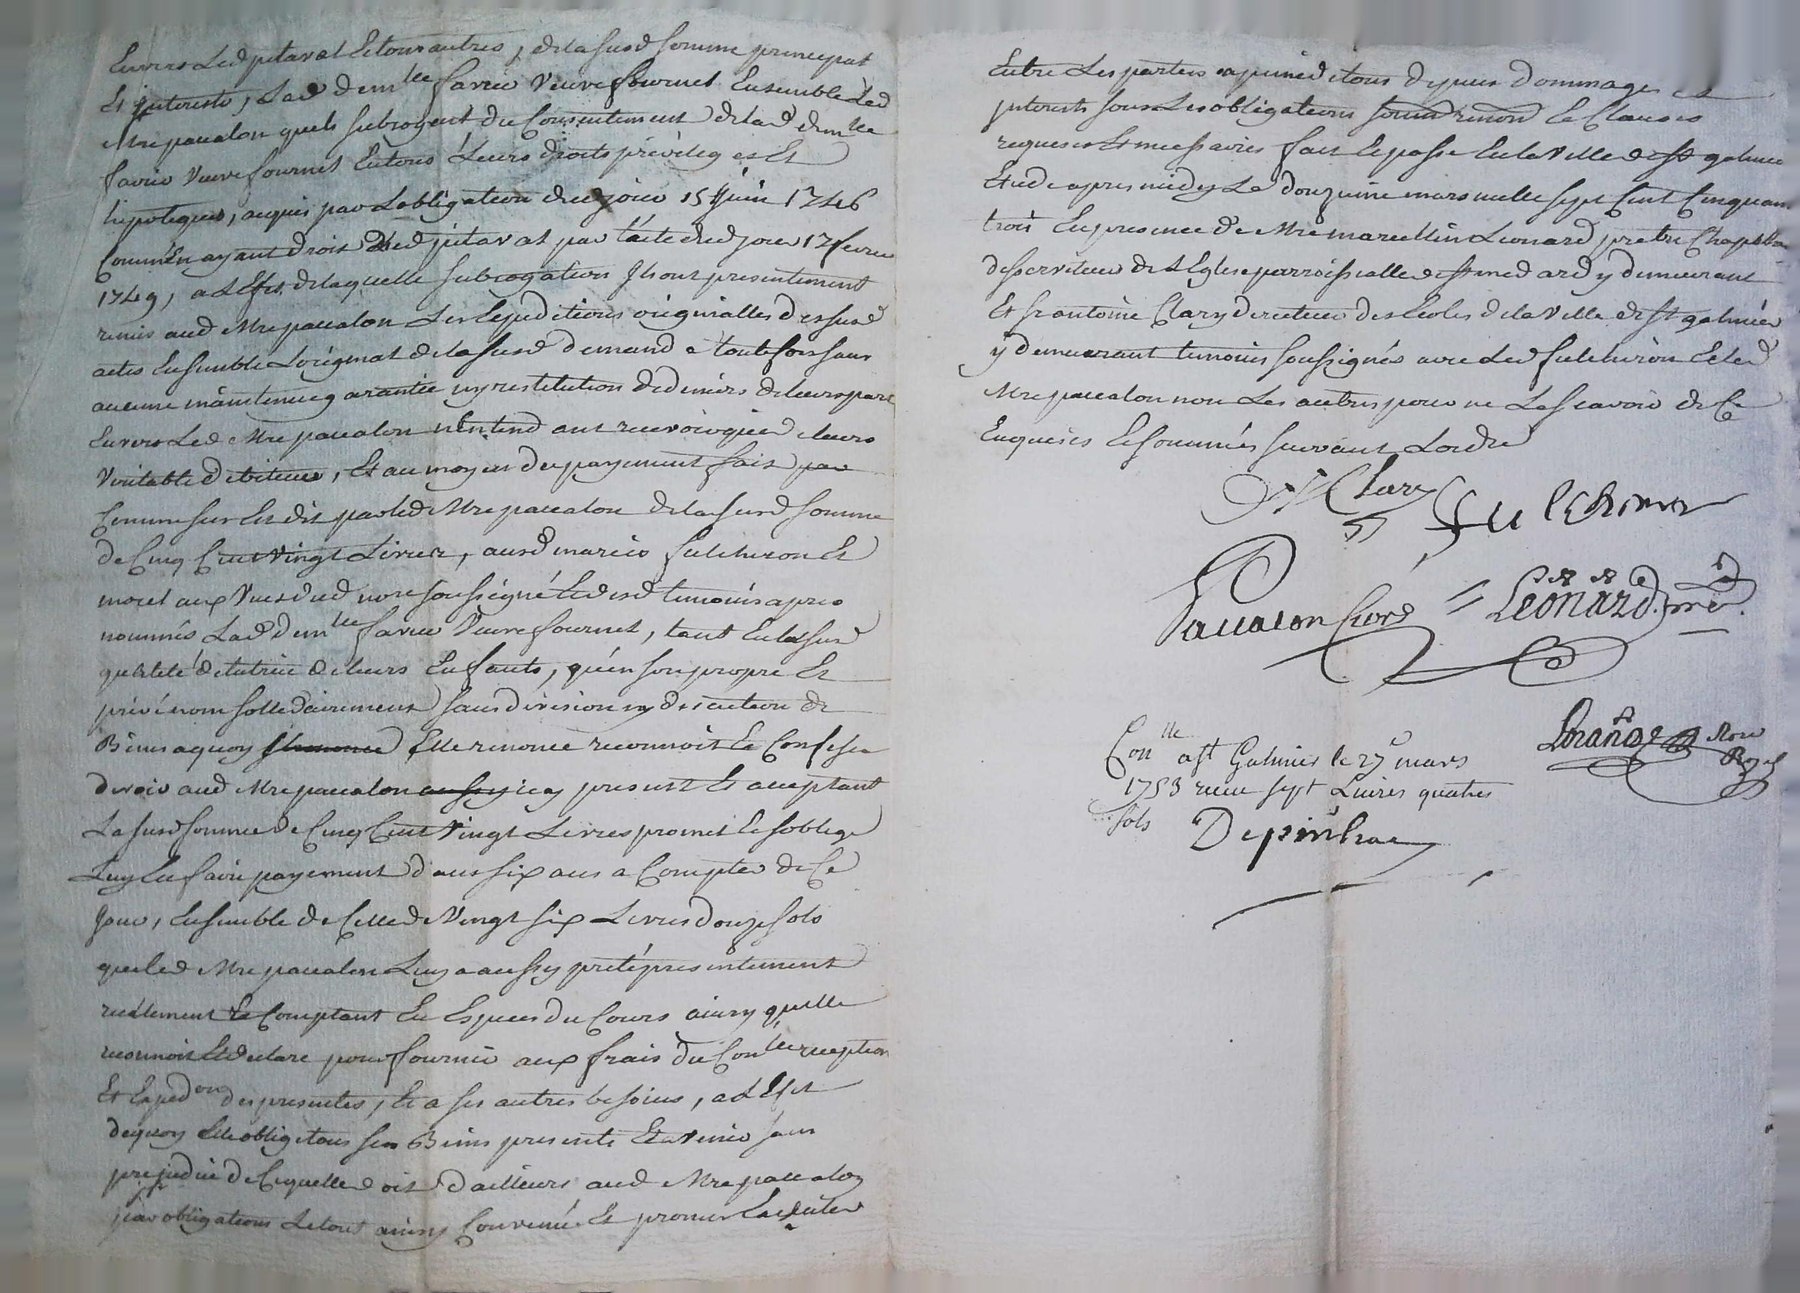 Envers Led pitaval Et tous autres, de la susd somme principal
Et jnterests, Lad dem.lle favier Veuve fournel Ensemble Led
Mre pacalon quels subrogent du Consentement de lad dem.lle
favier veuve fournel En tous Leurs droits privileges Et
hipoteques, acquis par Lobligation dud jour 15 Juin 1746
Comme Enayant droit dud pitaval par lacte dud jour 17 fevrier
1749, a Leffet de laquelle subrogation jls ont presentement
remis aud Mre pacalon Les Expeditions originalles desusd
actes Ensemble Loriginal de la susd demande toutefois sans
aucune maintenue garantie ny restitution de deniers de leurs part
Envers Led Mre pacalon n'Entendant recevoir que de leurs
Veritable debiteur, Et au moyen du payement fait par
Comme sur Est dit par led Mre pacalon de la susd somme
de Cinq Cent Vingt Livres, ausd mariés fulchiron Et
morel aux Vues dud nore soussigné Et desd temoins apres
nommés Lad dem.lle favier Veuve fournel, tant En lasusd
qualité de tutrice de leurs Enfants, qu'en son propre Et
privé nom sollidairement sans division ny discution de
Biens aquoy Elle renonce reconnoit Et Confesse
devoir aud Mre pacalon jcy present Et acceptant
La susd somme de Cinq Cent Vingt Livres promet Et soblige
Luy En faire payement dans six ans a Compter de Ce
Jour, Ensemble de Celle de Vingt six Livres douze sols
que led Mre pacalon Luy a aussy preté presentement
reellement Et Comptant En Especes du Cours ainsy quelle
reconnoit Et declare pour fournir aux frais du Con.lle reception
Et Exped.on des presentes, Et a ses autres besoins, a Leffet
dequoy Elle oblige tous ses Biens presents Et avenir sans
prejudice de Ce quelle doit d'ailleurs aud Mre pacalon
par obligations Le tout ainsy Convenu Et promis Executer
Entre Les parties apeine de tous depens dommages et
jnterests sous Les obligations soum renon Et Clauses
requises Et necessaires fait Et passé En la Ville de St galmier
Etude apres midy Le douzieme mars mille sept Cent Cinquante
trois En presence de Mre marcellin Leonard pretre Chapelain
desserviteur de L'Eglise parroissialle de St medard y demeurant
Et sr antoine Clary directeur des Ecoles de la Ville de St galmier
y demeurant temoins soussignés avec Led fulchiron Et led
Mre pacalon non Les autres pour ne Le scavoir de Ce
Enquis Et sommés suivant Lordre
Clary fulchiron
Pacalon Curé Leonard ptre.
Con.lle a St Galmier le 27e mars
1753 recu sept Livres quatres
sols
Nore
Royal
Depinhac